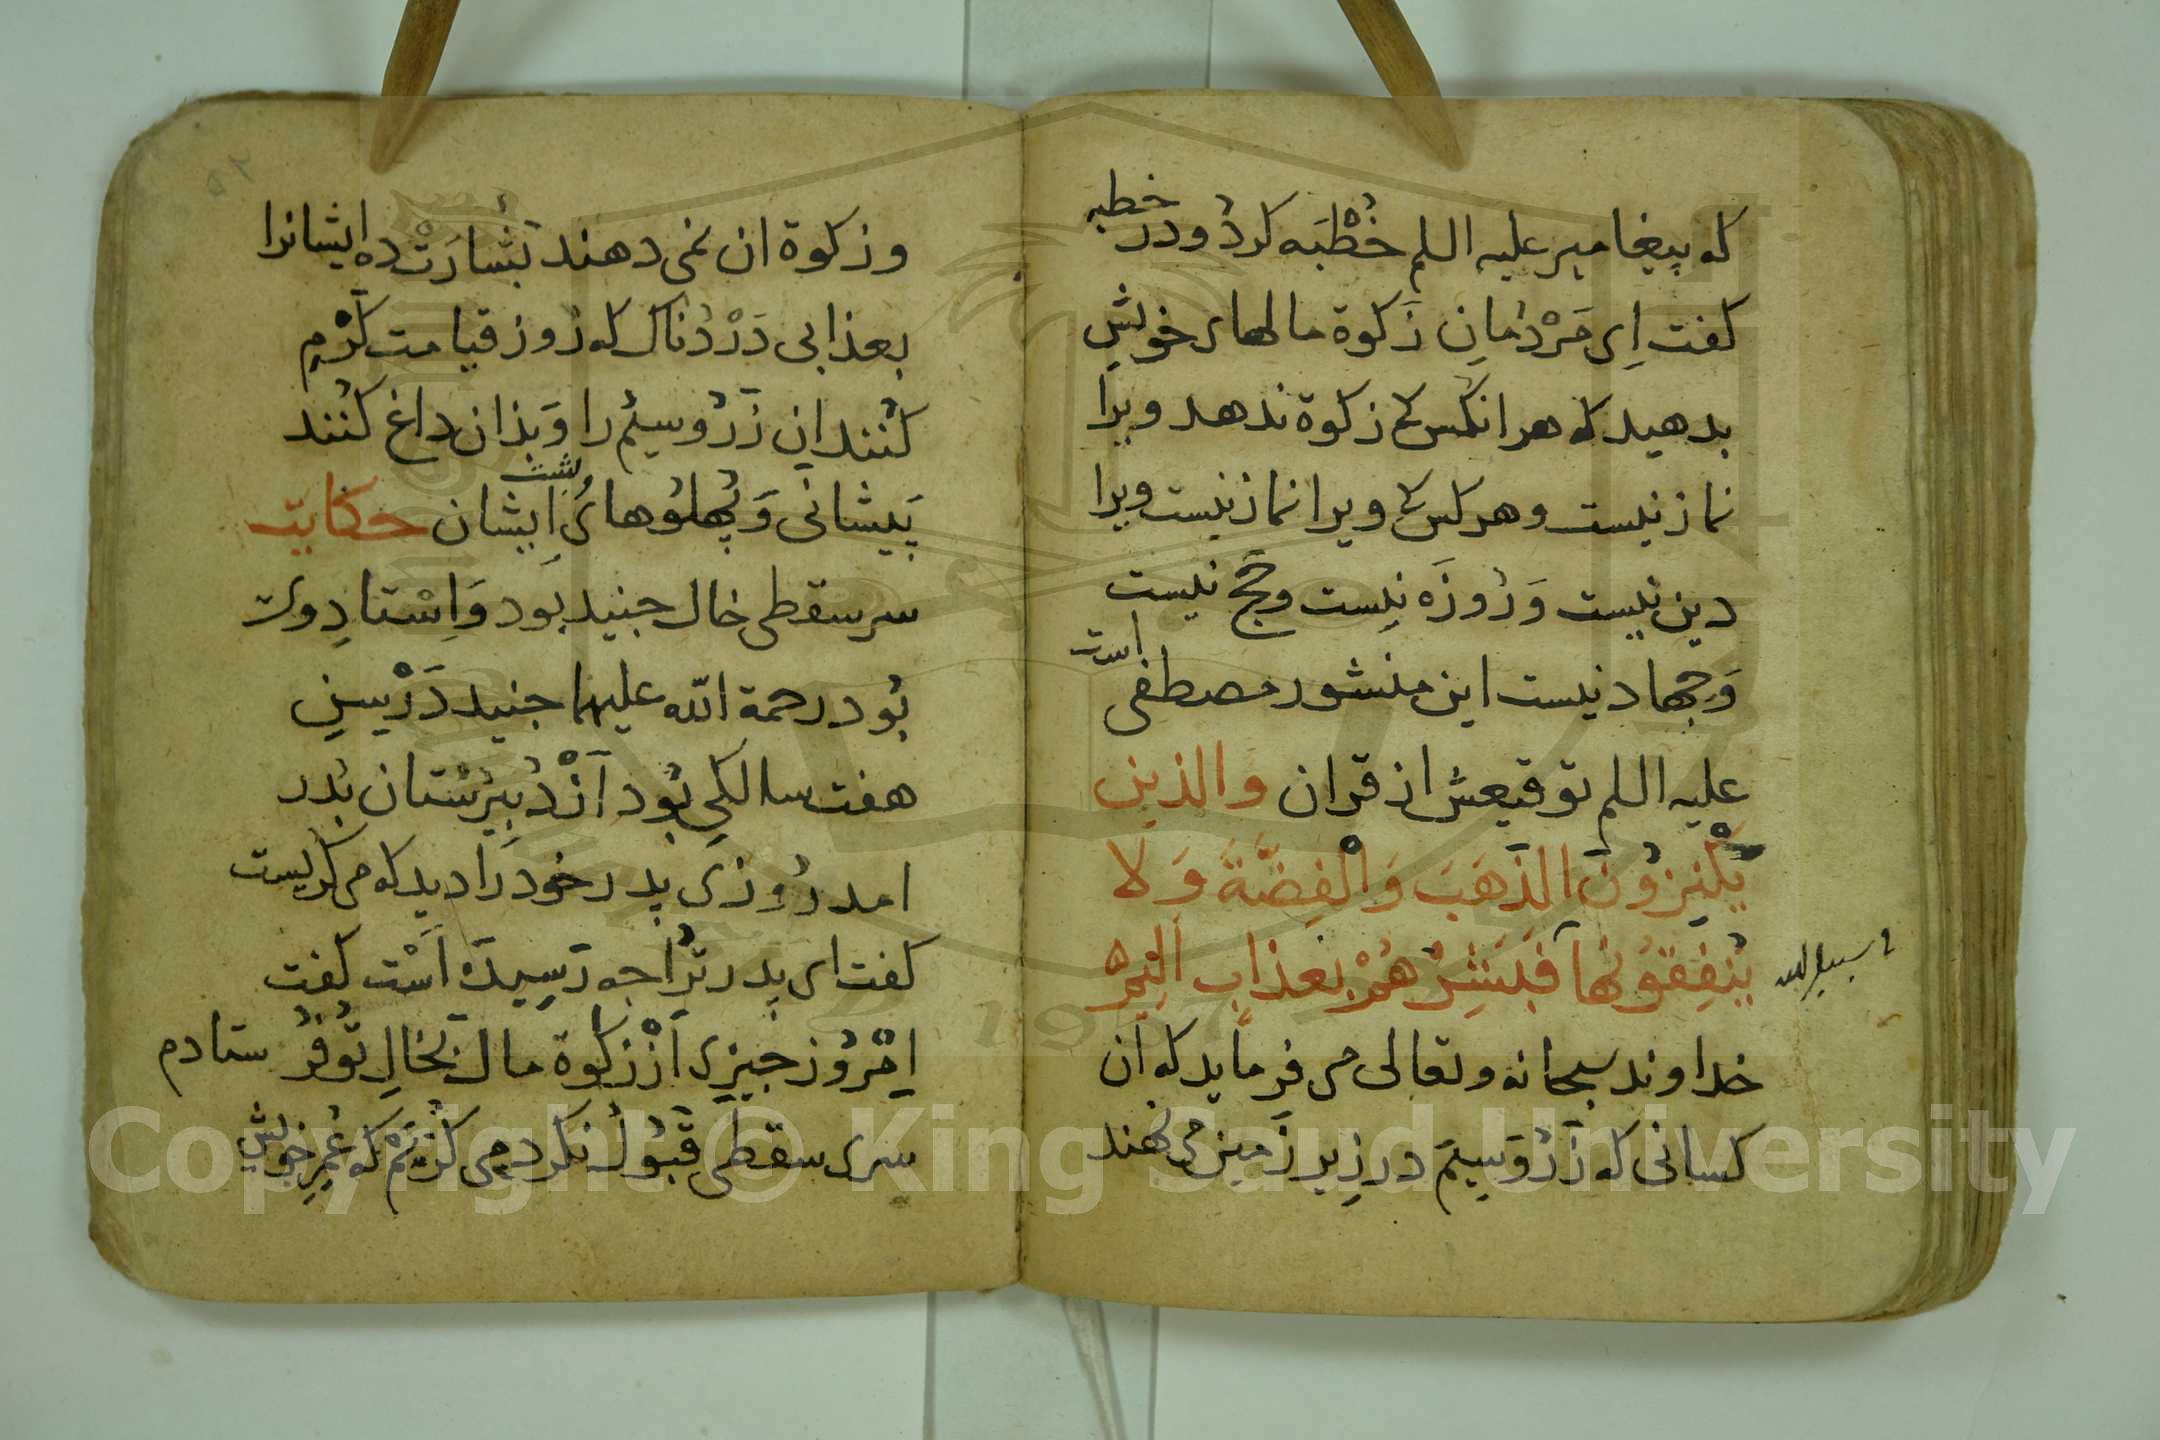 که پیغامبر علیه السلم خُطْبَه کردُ و در خطبه
کفت اِی مَرْدُمانِ زَکوة مالهای خویش
بدهید که هر انکس که زکوة ندهد ویرا
نماز نیست و هر کس که ویرا نماز نیست ویرا
دین نیست وَ رُوزَه نیست و حَجّ نیست
وَ جهاد نیست این منشور مصطفی است
علیه السلم توقیعش از قران وَالذین
یَکْنِزُونَ الذَهَبَ وَالْفِضَّةَ وَلَا
یُنْفِقُونَهَا فَبَشِّرْهُمْ بعَذابٍ اَلِیمْ
فی سبیل الله
خداوند سبحانه و تعالی می فرماید که آن
کسانی که زَرُ وَ سِیمَ در زیر زَمین می نهند
و زکوة ان نمی دهند بَشارَتْ ده ایشانرا
بعذابی دَرْدُناک که رُوز قیامت کَرْم
کُنند این زَرُ و سیمْ را وَ بذان داغ کُنند
پَیشانی وَ پُهلُوهاءُ پشت اِیشان حکایت
سر سقطی خال جنید بَود وَ اِسْتادِ وی
بُود رحمة الله علیهما جنید دَرْ سِنِ
هفت سالکی بُود اَزْ دُبِیرُسْتان بُدر
امد رُوزی پدر خود رَا دید که می کریست
کفت ای پِدَر تُرا چه رَسِیدَه اَسْت کفت
اِمْرُوز چیزی اَزْ زکوة مال بَخالِ تُو فُرُستادم
سری سقطی قَبُولُ نکرد می کریَم که عُمرِ خویش